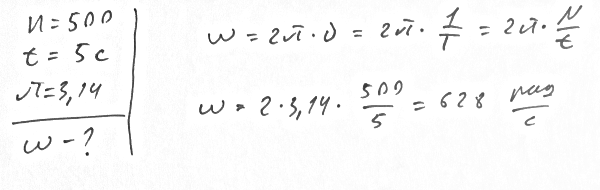 n = 500
t = 5 с
π = 3,14
ω - ?
ω = 2π · ν = 2π · 1/T = 2π · N/t
ω = 2 · 3,14 · 500/5 = 628 рад/с